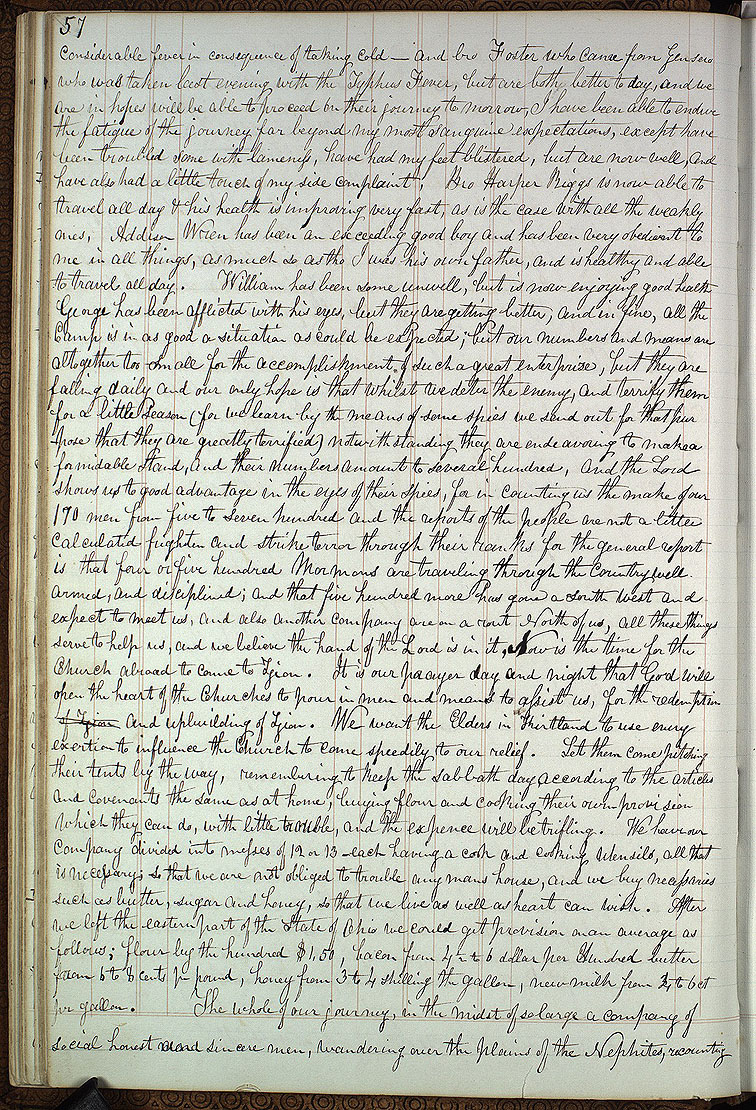 57
considerable fever in consequence of taking cold — and bro Foster who came from Genseo
who was taken last evening with the Typhus Fever, but are both better to day, and we
are in hopes will be able to proceed on their journey to morrow, I have been able to endure
the fatigue of the journey far beyond my most sanguine expectations, except have
been troubled some with lameness, have had my feet blistered, but are now well, and
have also had a little touch of my side complaint, Bro Harper Riggs is now able to
travel all day & his health is improving very fast, as is the case with all the weakly
ones, Addison Wren has been an exceeding good boy and has been very obedient to
me in all things, as much so as tho I was his own father, and is healthy and able
to travel all day. William has been some unwell, but is now enjoying good health
George has been afflicted with his eyes, but they are getting better, and in fine, all the
Camp is in as good a situation as could be expected; but our numbers and means are
altogether too small for the accomplishment of such a great enterprise, but they are
falling daily and our only hope is that whilst we deter the enemy, and terrify them
for a little season (for we learn by the means of some spies we send out for that pur
pose that they are greatly terrified) notwithstanding they are endeavoring to make a
formidable stand, and their numbers amount to several hundred, and the Lord
shows us to good advantage in the eyes of their spies, for in counting us the make of our
170 men from five to seven hundred and the reports of the people are not a little
calculated frighten and strike terror through their ranks for the general report
is that four or five hundred Mormons are traveling through the Country, well
armed, and disciplined; and that five hundred more has gone a south west and
expect to meet us, and also another company are on a rout North of us, all these things
serve to help us, and we believe the hand of the Lord is in it, Now is the time for the
Church abroad to come to Zion. It is our prayer day and night that God will
open the heart of the Churches to pour in men and means to assist us, for the redemption
of Zion and upbuilding of Zion. We want the Elders in Kirtland to use every
exertion to influence the Church to come speedily to our relief. Let them come pitching
their tents by the way, remembering to keep the sabbath day according to the articles
and covenants the same as at home, buying flour and cooking their own provision
which they can do, with little trouble, and the expence will be trifling. We have our
company divided into messes of 12 or 13 each having a cook and cooking utensils, all that
is necessary; so that we are not obliged to trouble any mans house, and we buy necessaries
such as butter, sugar and honey, so that we live as well as heart can wish. After
we left the eastern part of the State of Ohio we could get provision on an average as
follows; flour by the hundred $1,50, bacon from 4 to 6 dollar per hundred butter
from 6 to 8 cents pr pound, honey from 3 to 4 shilling the gallon, new milk from to 6 ct
pr gallon. The whole of our journey, in the midst of so large a company of
social honest and sincere men, wandering over the plains of the Nephites, recounting